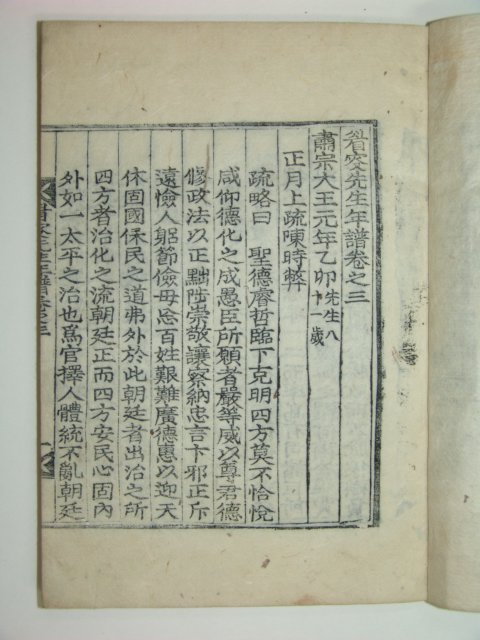 睂叜先生年譜卷之三
肅宗大王元年乙卯先生八十一歲
正月上疏陳時弊
疏略曰 聖德睿哲臨下克明四方莫不恰悅
咸仰德化之成愚臣所願者嚴等威以尊君德
修政法以正黜陟崇敬讓察納忠言卞邪正斥
遠憸人躬節儉毋忘百姓艱難廣德惠以迎天
休固國保民之道弗外於此朝廷者出治之所
四方者治化之流朝廷正而四方安民心固內
外如一太平之治也爲官擇人體統不亂朝廷